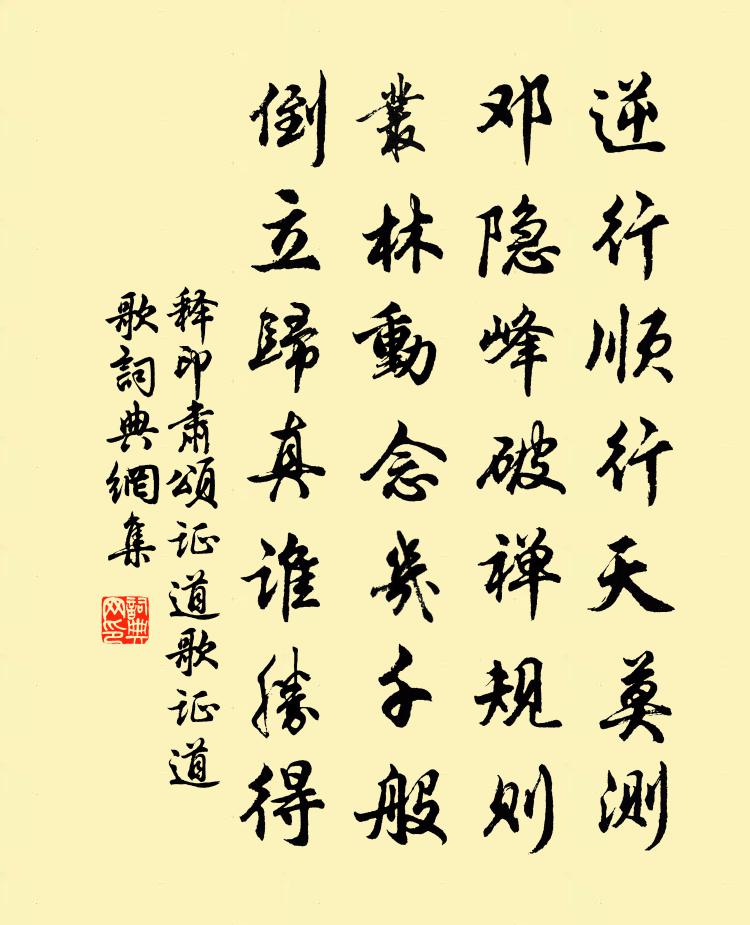 逆行顺行天莫测
邓隐峰破禅规则
叢林動念幾千般
倒立歸真谁勝得
释印肃颂证道歌证道
歌詞典網集
詞典
网印